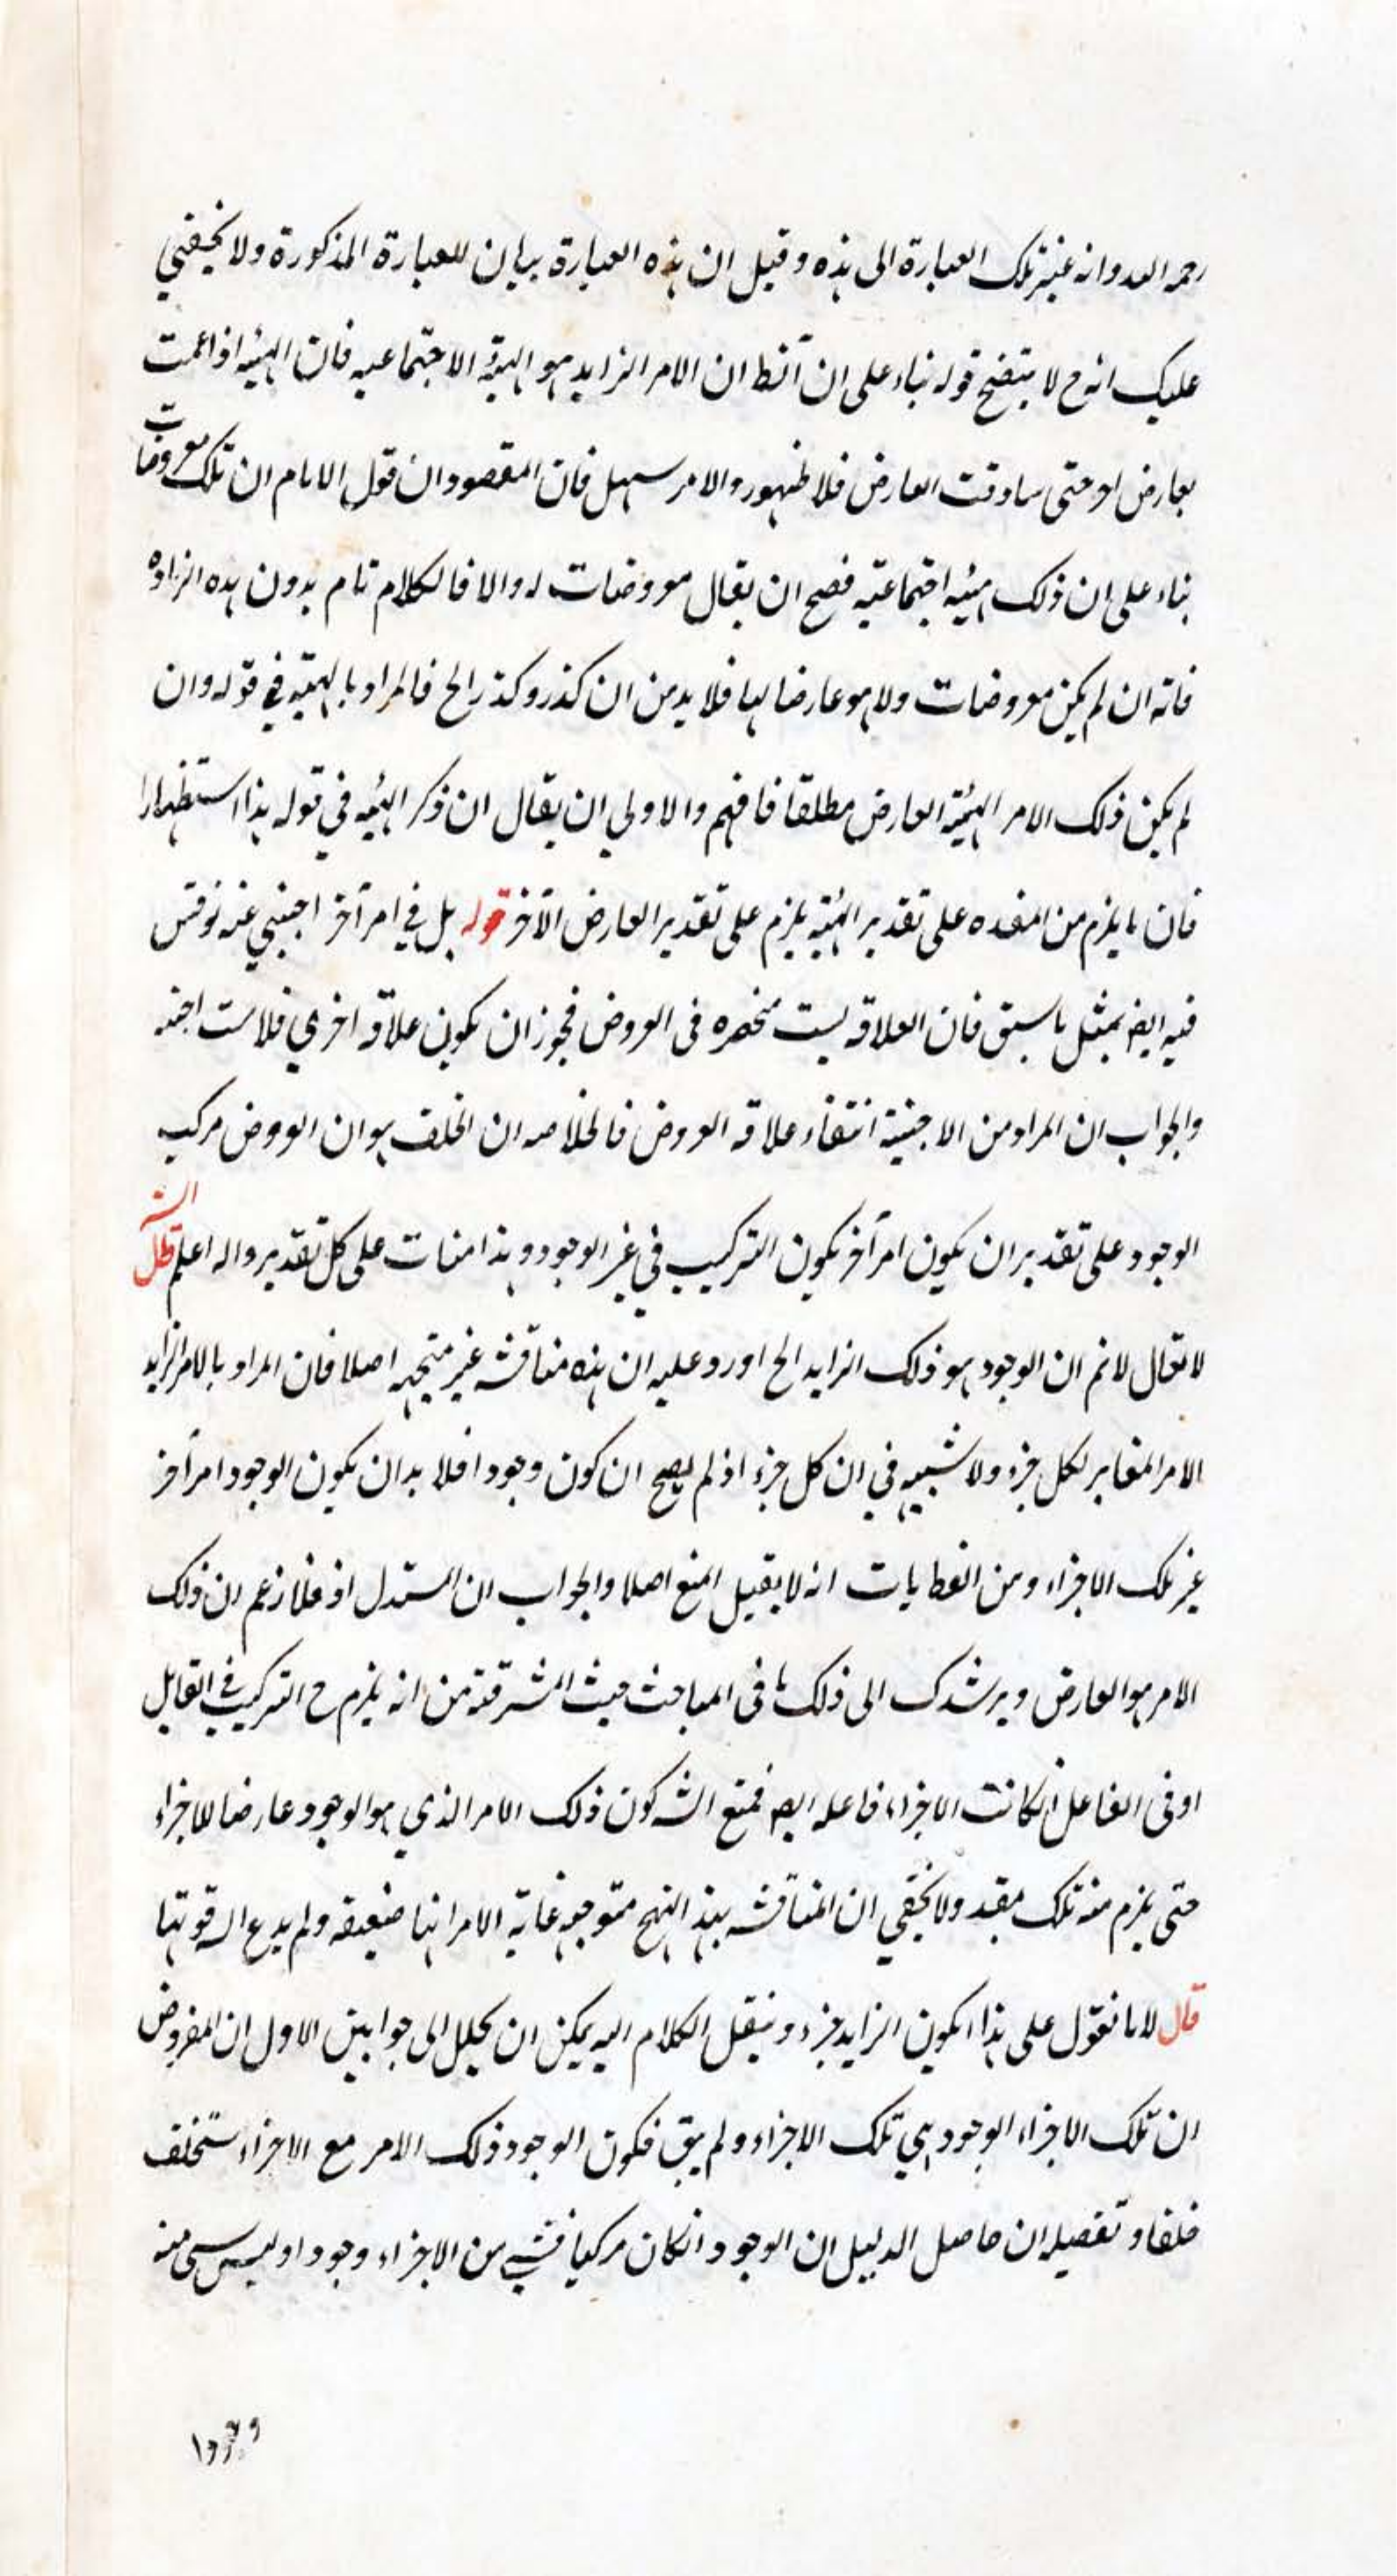 رحمه الله وانه غير تلك العبارة الى هذه وقيل ان هذه العبارة بيان للعبارة المذكورة ولا يخفى
عليك انه ح لا يتضح قوله بناء على ان ان الامر الزايد هو الهيئة الاجتماعيه فان الهيئه اذا عمت
بعارض حتى ساوقت العارض فلا ظهور والامر سهل فان المقصود ان قول الامام ان تلك معروضات
بناء على ان ذلك هيئه اجتماعيه فصح ان يقال معروضات له والا فالكلام تام بدون هذه الزياده
فانه ان لم يكن معروضات ولا هو عارضا لها فلا بد من ان كذر وكذر الخ فالمراد بالهيئه في قوله وان
لم يكن ذلك الامر الهيئة العارض مطلقا فافهم والاولي ان يقال ان ذكر الهيئه في قوله هذا استظهارا
فان ما يلزم من المفسده على تقدير الهيئه يلزم على تقدير العارض الآخر قوله بل في امر آخر اجنبي عنه نوقش
فيه ايضا بمثل ما سبق فان العلاقه ليست منحصره فى العروض فيجوز ان يكون علاقه اخري فلا
والجواب ان المراد من الاجنبية انتفاء علاقه العروض فالخلاصه ان الخلف هو ان العروض مركب
الوجود على تقدير ان يكون امر آخر يكون التركيب في غير الوجود وهذا على كل تقدير والله اعلم قال الش
لا يقال لا نم ان الوجود هو ذلك الزايد الخ اورد عليه ان هذه مناقشه غير متجهه اصلا فان المراد بالامر الزايد
الامر المغاير لكل جزء ولا شبهه في ان كل جزء اذ لم يصح ان كون وجودا فلا بد ان يكون الوجود امر آخر
غير تلك الاجزاء ومن انه لا يقبل المنع اصلا والجواب ان المستدل زعم ان ذلك
الامر هو العارض ويرشدك الى ذلك ما فى المباحث المشرقية من انه يلزم ح التركيب في القابل
او فى الفاعل ان كانت الاجزاء فاعله ايضا فمنع الش كون ذلك الامر الذي هو الوجود عارضا للاجزاء
حتى يلزم منه تلك ولا يخفي ان المناقشه بهذا النهج متوجهه غاية الامر انها ضعيفه ولم يدع الش قوتها
قال لانا نقول على هذا يكون الزايد جزء وينقل الكلام اليه يمكن ان يحلل الى جوابين الاول ان المفروض
ان تلك الاجزاء الوجود هي تلك الاجزاء ولم يبق فكون الوجود ذلك الامر مع الاجزاء
خلفا وتفصيله ان حاصل الدليل ان الوجود ان كان مركبا فشيء من الاجزاء وجود او ليس شى منه